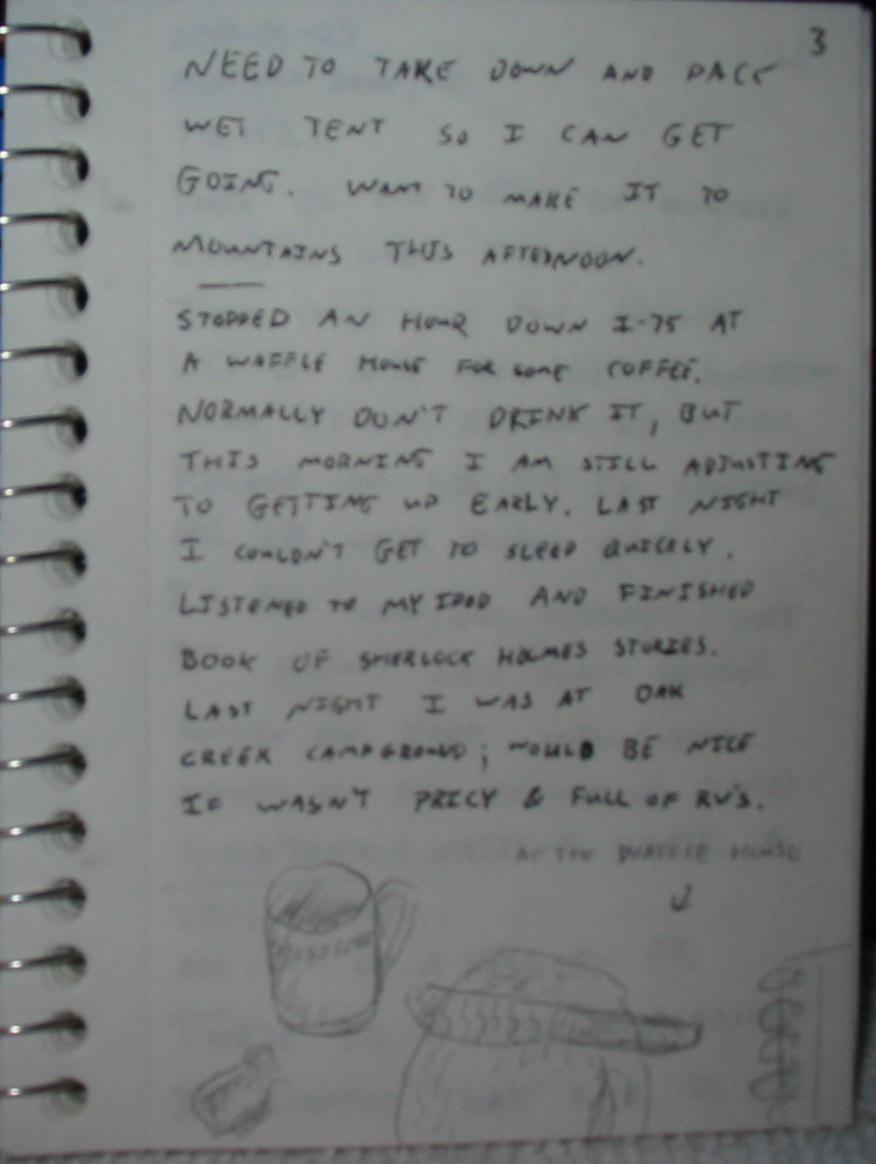 3
NEED TO TAKE DOWN AND PACK
WET TENT SO I CAN GET
GOING. WANT TO MAKE IT TO
MOUNTAINS THIS AFTERNOON.
STOPPED AN HOUR DOWN I-75 AT
A WAFFLE HOUSE FOR SOME COFFEE.
NORMALLY DON'T DRINK IT, BUT
THIS MORNING I AM STILL ADJUSTING
TO GETTING UP EARLY. LAST NIGHT
I COULDN'T GET TO SLEEP QUICKLY.
LISTENED TO MY IPOD AND FINISHED
BOOK OF SHERLOCK HOLMES STORIES.
LAST NIGHT I WAS AT OAK
CREEK CAMPGROUND; WOULD BE NICE
IF WASN'T PRICY & FULL OF RV'S.
AT THE WAFFLE HOUSE